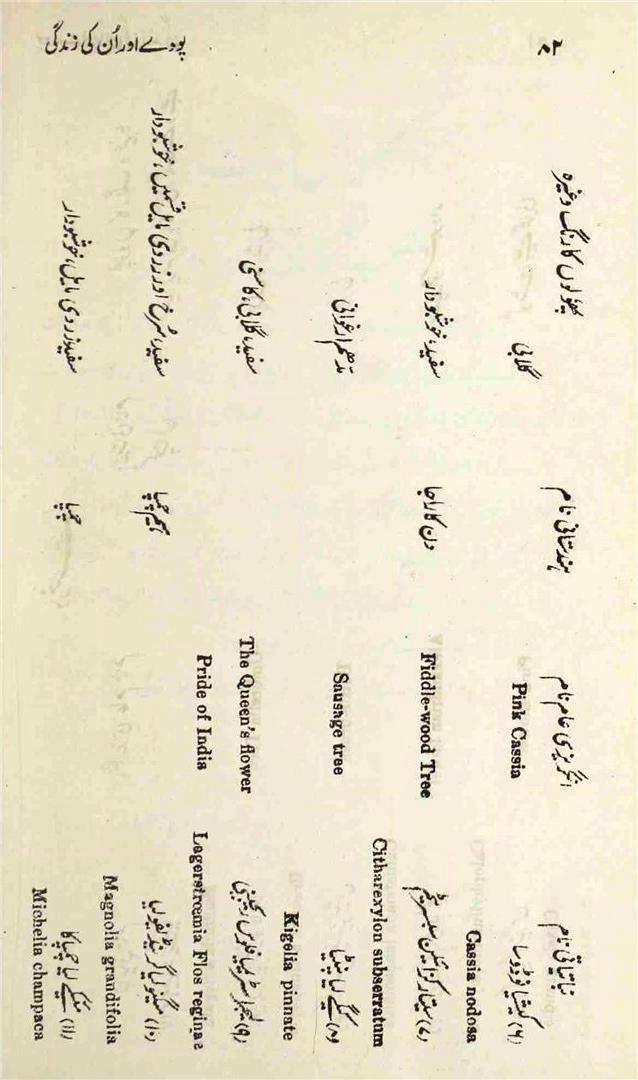 ۸۲
پودے اور اُن کی زندگی
نباتیاتی نام
انگریزی عام نام
ہندستانی نام
پھولوں کا رنگ وغیرہ
(۶) کیشیا نوڈوسا
Cassia nodosa
Pink Cassia
گلابی
(۷) سیتارکزائیلن سبسریٹم
Citharexylon subserratum
Fiddle-wood Tree
دن کا راجا
سفید، خوشبودار
(۸) کیگے لیا پنیٹا
Kigelia pinnate
Sausage tree
مدھم ارغوانی
(۹) لیجراسٹرمیا فلوس ریجینی
Lagerstroemia Flos reginae
The Queen's flower
Pride of India
سفید، گلابی، کاسنی
(۱۰) میگنولیا گرینڈیفولیا
Magnolia grandifolia
ہیم چمپا
سفید، سُرخ اور زردی مایل قسمیں، خوشبودار
(۱۱) میکے لیا چمپاکا
Michelia champaca
چمپا
سفید زردی مایل، خوشبودار